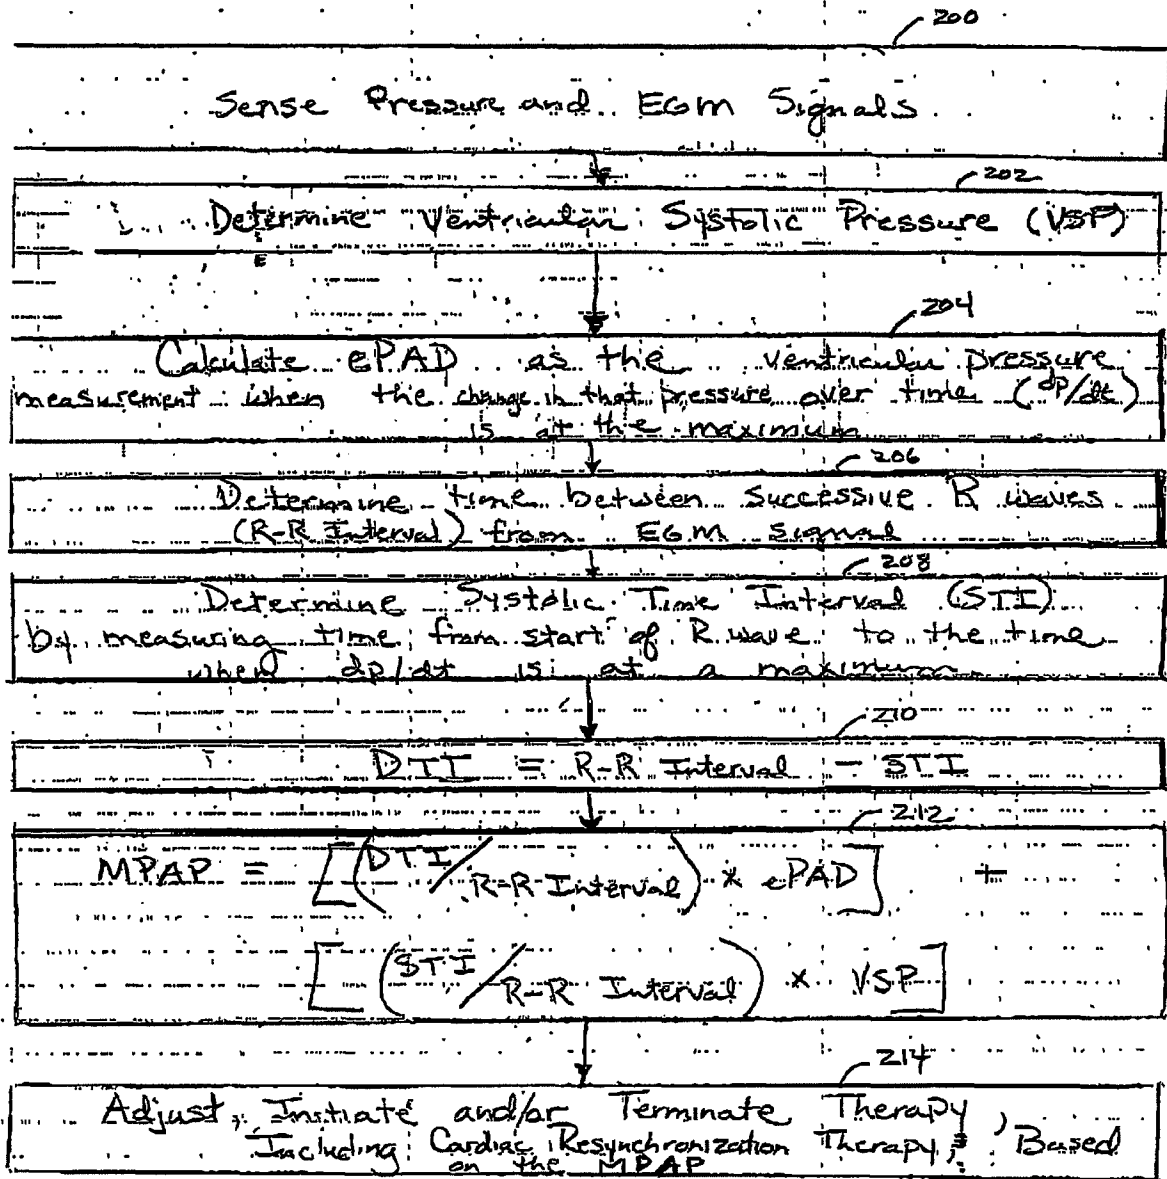 200
Sense Pressure and EGM Signals
202
Determine Ventricular Systolic Pressure (VSP)
204
Calculate ePAD as the ventricular pressure
measurement when the change in that pressure over time (dp/dt)
is at the maximum
206
Determine time between successive R waves
(R-R Interval) from EGM signal
208
Determine Systolic Time Interval (STI)
by measuring time from start of R wave to the time
when dp/dt is at a maximum
210
DTI = R-R Interval - STI
212
MPAP = [(DTI/R-R Interval) * ePAD] +
[(STI/R-R Interval) * VSP]
214
Adjust, Initiate and/or Terminate Therapy,
Including Cardiac Resynchronization Therapy, Based
on the MPAP